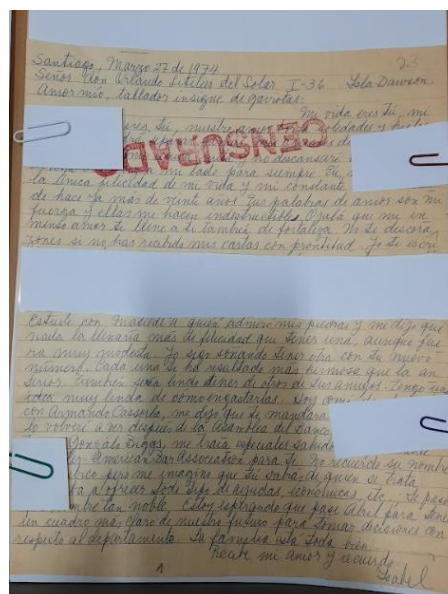 23
Santiago, Marzo 27 de 1974
Señor don Orlando Letelier del Solar I-36 Isla Dawson.
Amor mío, tallador insigne de gaviotas:
Mi vida eres Tú, mi
eres Tú, nuestro amor
CENSURADO
no descansaré
mi lado para siempre Tú,
la única felicidad de mi vida y mi constante
de hace ya más de veinte años. Tus palabras de amor son mi
fuerza y ellas me hacen indestructible. Ojalá que mi in
menso amor te llene a ti también de fortaleza. No te descora
zones si no has recibido mis cartas con prontitud. Yo te escri
Estuve con a quién admiró mis piedras y me dijo que
nada la llenaría más de felicidad que tener una, aunque fue
ra muy modesta. Yo sigo soñando tener otra con tu nuevo
número. Cada una te ha resultado más hermosa que la an
terior. También sería lindo tener de otros de tus amigos. Tengo una
idea muy linda de cómo engastarlas. Hoy
con Armando Cassorla, me dijo que te mandara
lo volveré a ver después de la Asamblea del Banco
Gonzalo Biggs, me traía especiales saludos
American Bar Association para ti. No recuerdo su nombre
pero me imagino que Tú sabrás de quien se trata
a ofrecer todo tipo de ayudas, económicas, etc. Te pasó
hombre tan noble. Estoy esperando que pase Abril para tener
un cuadro más claro de nuestro futuro para tomar decisiones con
respecto al departamento. La familia está toda bien.
Recibe mi amor y recuerdo
Isabel
1